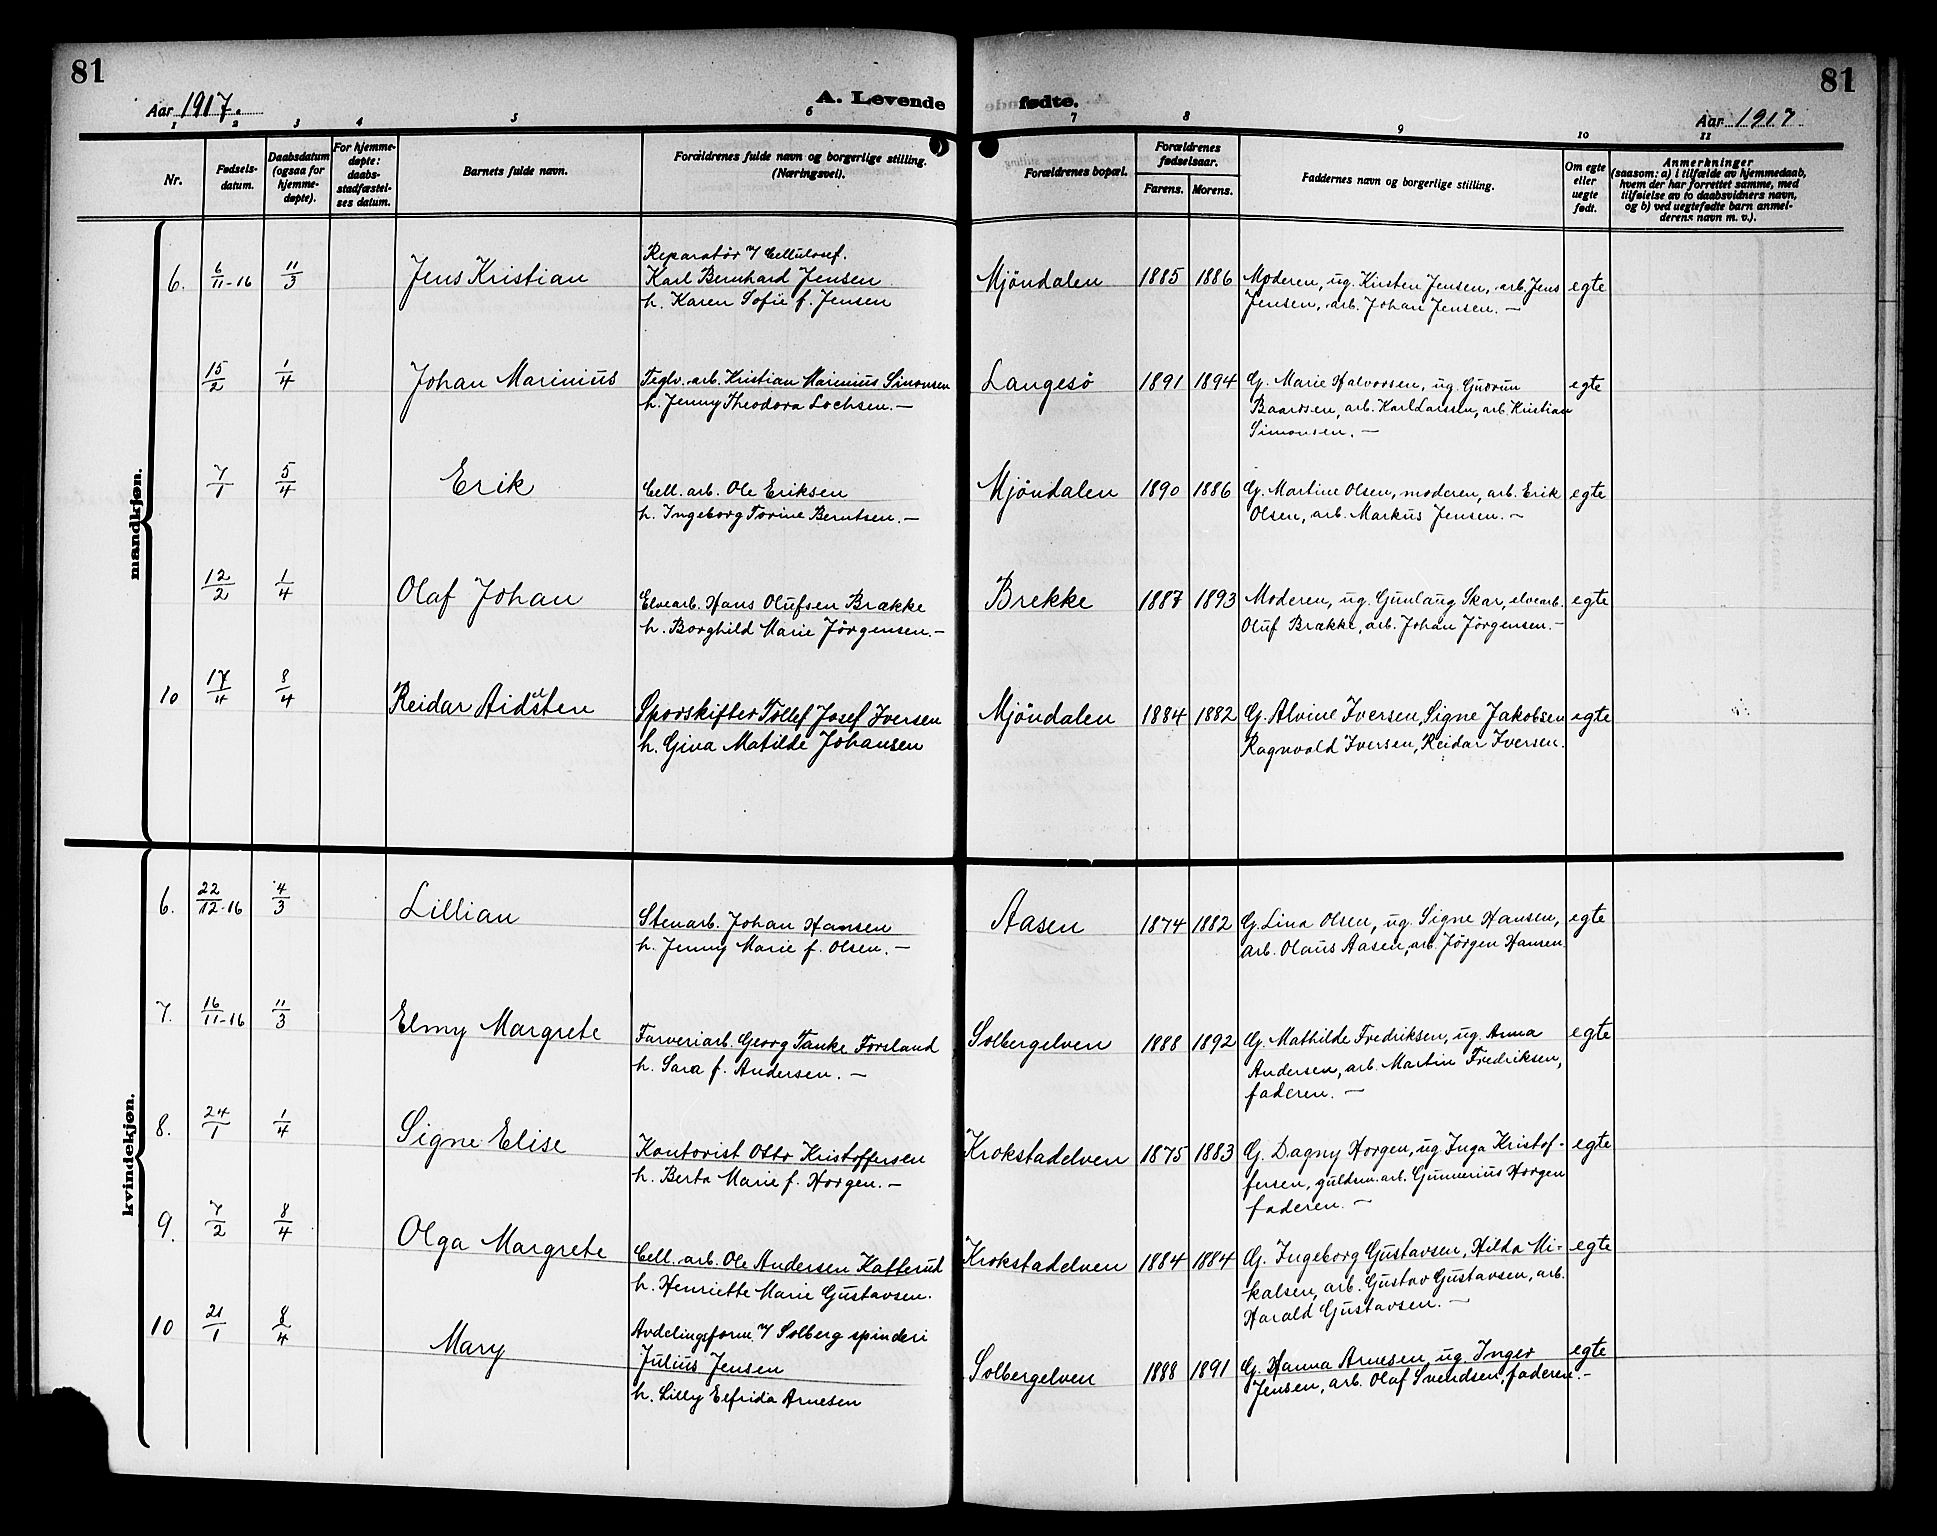 81
81
Aar 1917.
A. Levende fødte.
Aar 1917
1 2 3 4 5 6 7 8 9 10 11
Nr.
Fødselsdatum.
Daabsdatum (ogsaa for hjemmedøpte).
For hjemmedøpte: daabsstadfæstelses datum.
Barnets fulde navn.
Forældrenes fulde navn og borgerlige stilling. (Næringsvei).
Forældrenes bopæl.
Forældrenes fødselsaar.
Farens. Morens.
Faddernes navn og borgerlige stilling.
Om egte eller uegte født.
Anmerkninger
(saasom: a) i tilfælde av hjemmedaab,
hvem der har forrettet samme, med
tilføielse av to daabsvidners navn,
og b) ved uegtefødte barn anmelderens navn m. v.).
mandkjøn.
6. 6/11-16 11/3 Jens Kristian
Reparatør v/ Cellulosef.
Karl Bernhard Jensen
h. Karen Sofie f. Jensen
Mjöndalen 1885 1886
Moderen, ug. Kirsten Jensen, arb. Jens
Jensen, arb. Johan Jensen. —
egte
15/2 1/4 Johan Marinius
Teglv. arb. Kristian Marinius Simonsen
h. Jenny Theodora Lochsen. —
Langesö 1891 1894
G. Marie Halvorsen, ug. Gudrun
Baardsen, arb. Karl Larssen, arb. Kristian
Simonsen. —
egte
7/1 5/4 Erik
Cell. arb. Ole Eriksen
h. Ingeborg Torine Berntsen. —
Mjöndalen 1890 1886
G. Martine Olsen, moderen, arb. Erik
Olsen, arb. Markus Jensen. —
egte
12/2 1/4 Olaf Johan
Elvearb. Hans Olufsen Brække
h. Borghild Marie Jörgensen. —
Brekke 1887 1893
Moderen, ug. Gunlaug Skar, elvearb.
Oluf Brække, arb. Johan Jörgensen. —
egte
10 17/4 8/4 Reidar
Sporskifter Tollef Josef Iversen
h. Gina Matilde Johansen
Mjöndalen 1884 1882
G. Alvine Iversen, Signe Jakobsen
Ragnvald Iversen, Reidar Iversen.
egte
kvindekjøn.
6. 22/12-16 4/3 Lillian
Stenarb. Johan Hansen
h. Jenny Marie f. Olsen. —
Aasen 1874 1882
G. Lina Olsen, ug. Signe Hansen,
arb. Olaus Aasen, arb. Jörgen Hansen
egte
7. 16/11-16 11/3 Elmy Margrete
Farveriarb. Georg Tanke Forsland
h. Sara f. Andersen. —
Solbergelven 1888 1892
G. Mathilde Fredriksen, ug. Anna
Andersen, arb. Martin Fredriksen,
faderen. —
egte
8. 24/1 1/4 Signe Elise
Kontorist Otto Kristoffersen
h. Berta Marie f. Horgen. —
Krokstadelven 1875 1883
G. Dagny Horgen, ug. Inga Kristof-
fersen, guldsm. arb. Gunnerius Horgen
faderen. —
egte
9. 7/2 8/4 Olga Margrete
Cell. arb. Ole Andersen Katterud
h. Henriette Marie Gustavsen.
Krokstadelven 1884 1884
G. Ingeborg Gustavsen, Hilda Mi-
kalsen, arb. Gustav Gustavsen, arb.
Harald Gustavsen. —
egte
10 21/1 8/4 Mary
Avdelingsform. v/ Solberg spinderi
Julius Jensen
h. Lilly Elfrida Arnesen
Solbergelven 1888 1891
G. Hanna Arnesen, ug. Inger
Jensen, arb. Olaf Svendsen, faderen. —
egte